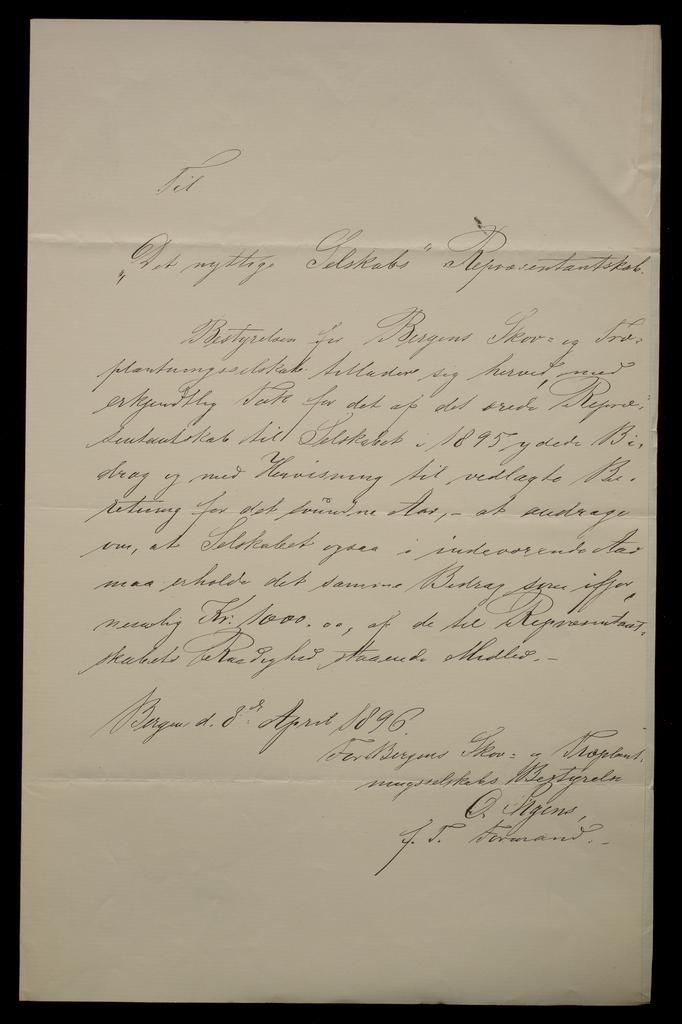 Til
„Det nyttige Selskabs" Repræsentantskab.
Bestyrelsen for Bergens Skov= og Træ=
plantningsselskab tillader sig herved, med
erkjendtlig Tak for det af det ærede Repræ-
sentantskab til Selskabet i 1895 ydede Bi-
drag og med Henvisning til vedlagte Be-
retning for det svundne Aar, – at andrage
om, at Selskabet ogsaa i indeværende Aar
maa erholde det samme Bidrag som ifjor,
nemlig Kr. 1000.00, af de til Repræsentant-
skabets Raadighed staaende Midler. –
Bergen d. 8de April 1896.
For Bergens Skov= og Træplant-
ningsselskabs Bestyrelse
O.
f. T. Formand. –